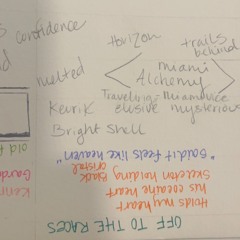 confidence
horizon
trails
behind
melted
miami
Alchemy
Traveling
Kevrik elusive mysterious
Bright Shell
"Said it feels like heaven"
Skeleton holding Black
his cocaine heart
Holds my heart
OFF TO THE RACES